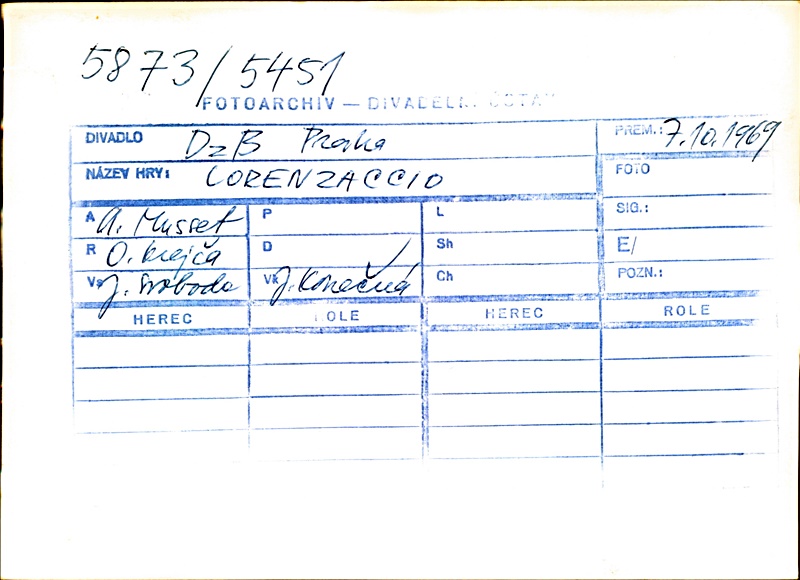 5873/5451
FOTOARCHIV — DIVADELNÍ ÚSTAV
DIVADLO DzB Praha PREM.: 7.10.1969
NÁZEV HRY: LORENZACCIO FOTO
A A. Musset P L SIG.:
R O. Krejča D Sh E/
Vs J. Svoboda Vk J. Konečná Ch POZN.:
HEREC ROLE HEREC ROLE